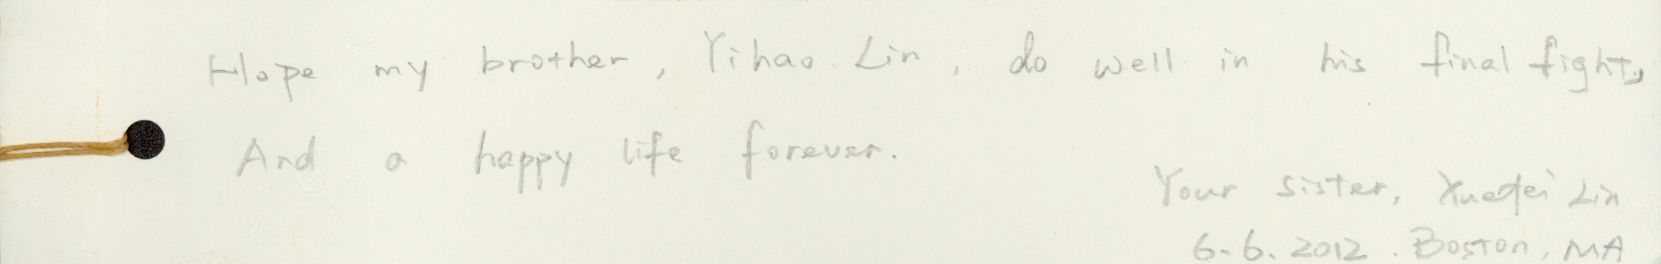 Hope my brother, Yihao Lin, do well in his final fight,
And a happy life forever.
Your sister, Xuefei Lin
6.6.2012. Boston, MA